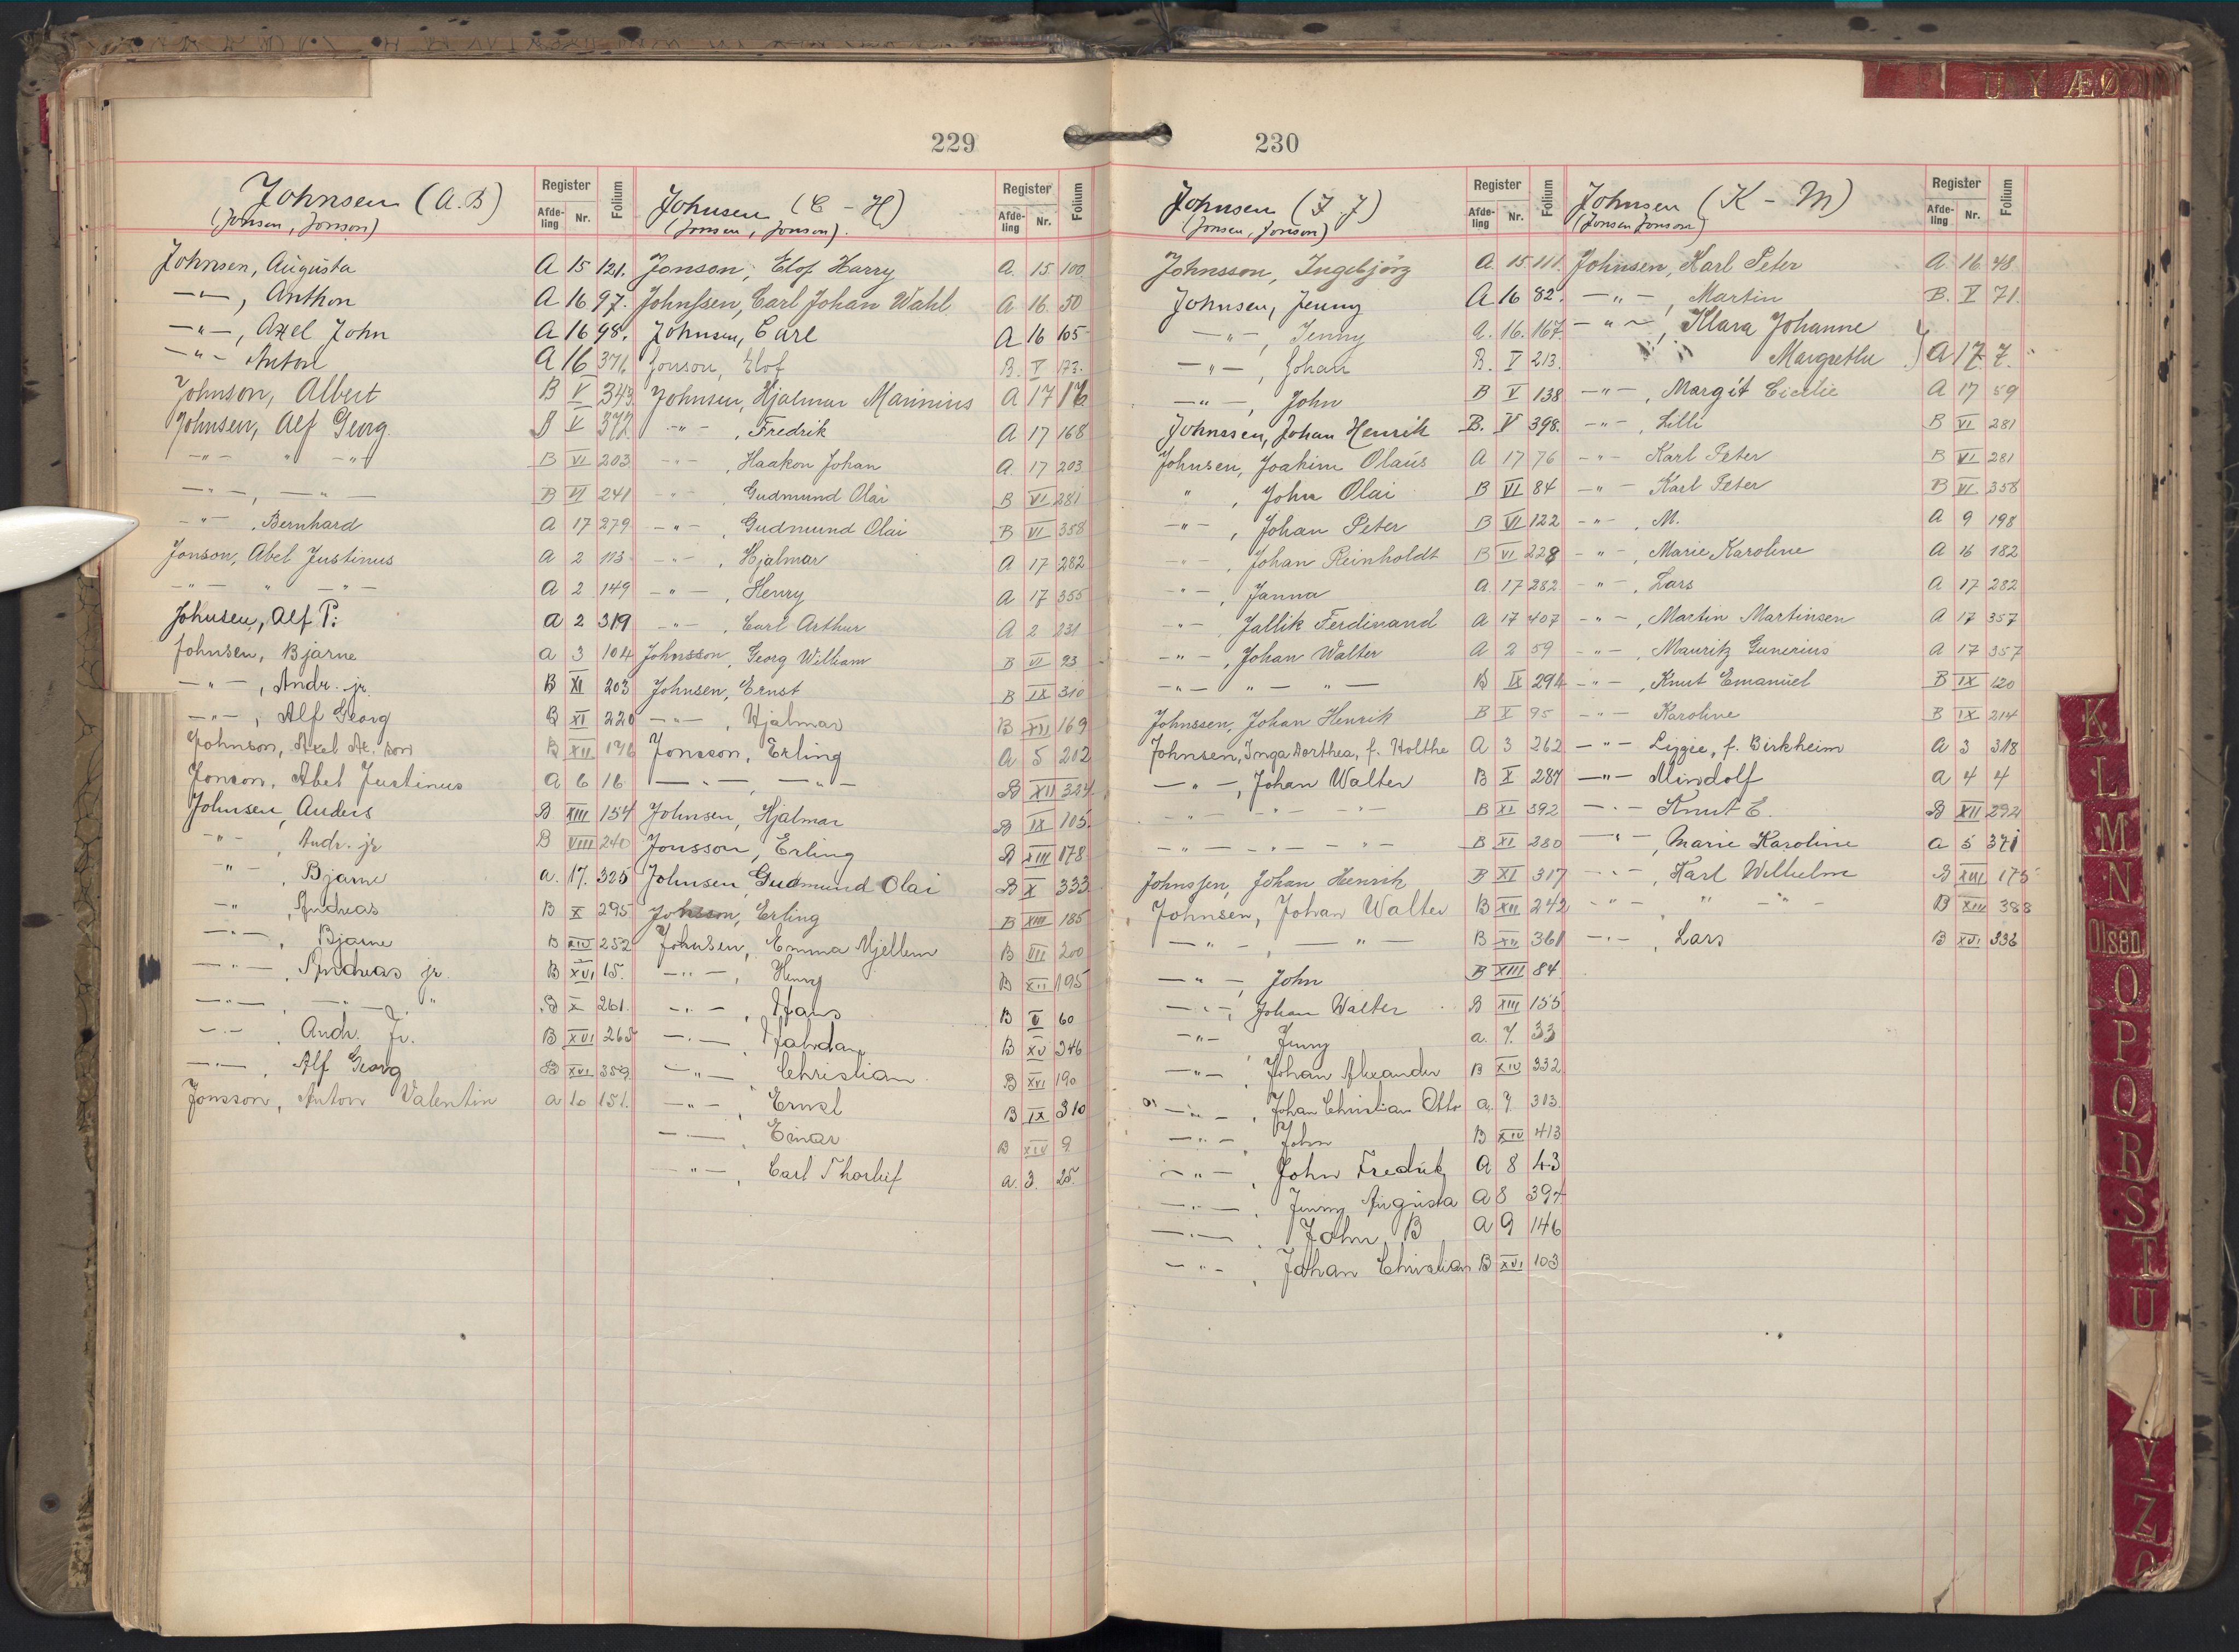 U Y Æ Ø
229
Johnsen (A.B)
(Jonsen, Jonson)
Register
Afde-ling Nr. Folium
Johnsen, Augusta A 15 121.
—"—, Anthon A 16 97.
—"—, Axel John A 16 98.
—"— Anton A 16 371
Johnson, Albert B V 343
Johnsen, Alf Georg B V 372
—"— " —"— B VI 203
—"—, —"— B VI 241
—"—, Bernhard A 17 279
Jonson, Abel Justinus A 2 113
—"— " —"— A 2 149
Johnsen, Alf P: A 2 319
Johnsen, Bjarne A 3 104
—"—, Andr. jr. B XI 203
—"—, Alf Georg B XI 220
Johnson, Axel B XII 196
Jonson, Abel Justinus A 6 16
Johnsen, Anders B XIII 154
—"—, Andr. jr B VIII 240
—"—, Bjarne a. 17. 325
—"—, Andreas B X 295
—"—, Bjarne B XIV 252
—"—, Andreas jr. B XVI 15.
—"—, —"— " B X 261.
—"—, Andr. Jr. B XVI 265
—"—, Alf Georg B XVI 359
Jonsson, Anton Valentin a 10 151.
Johnsen (C - H)
(Jonsen, Jonson).
Register
Afde-ling Nr. Folium
Jonson, Elof Harry A. 15 100
Johnssen, Carl Johan Wahl A 16 50
Johnsen, Carl A 16 105
Jonson, Elof B. V 173.
Johnsen, Hjalmar Marinius A 17 16
—"—, Fredrik A 17 168
—"—, Haakon Johan A. 17 203
—"—, Gudmund Olai B VI 281
—"—, Gudmund Olai B VI 358
—"—, Hjalmar A 17 282
—"—, Henry A 17 355
—"—, Carl Arthur A 2 231
Johnsson, Georg William B VI 23
Johnsen, Ernst B IX 310
—"—, Hjalmar B XII 169
Jonsson, Erling A 5 212
—"—, —"— B XII 324
Johnsen, Hjalmar B IX 105
Jonsson, Erling B XIII 178
Johnsen Gudmund Olai B X 333
Erling B XIII 185
Johnsen, Emma Mjellem B VII 200
—"—, Henry B XII 195
—"—, Hans B V 60
—"—, Halvdan B XV 246
—"—, Christian B XVI 190
—"—, Ernst B IX 310
—"—, Einar B XIV 9
—"—, Carl Thorleif a. 3. 25.
230
Johnsen (I J)
(Jonsen, Jonson)
Register
Afde-ling Nr. Folium
Johnsson, Ingebjörg A. 15 111.
Johnsen, Jenny A 16 82.
—"—, Jenny A. 16. 167.
—"—, Johan B. V 213.
—"—, John B V 138
Johnssen, Johan Henrik B. V 398.
Johnsen, Joakim Olaus A 17 76
", John Olai B VI 84
—"—, Johan Peter B VI 122
—"—, Johan Reinholdt B VI 228
—"—, Janna A 17 282
—"— Jallik Ferdinand A 17 407
—"—, Johan Walter A 2 59
—"— " — " — B IX 294
Johnssen, Johan Henrik B X 95
Johnsen, Inga Dorthea, f. Holthe A 3 262
—"—, Johan Walter B X 287
—"— —"— B XI 392
—"— —"— —"— B XI 280
Johnssen, Johan Henrik B XI 317
Johnsen, Johan Walter B XII 242
—"—, —"— B XII 361
—"—, John B XIII 84
—"—, Johan Walter B XIII 155
—"— Jenny a. 7. 33
—"—, Johan Alexander B XIV 332
—"—, Johan Christian Otto a. 7. 313.
—"— John B XIV 413
—"—, John Fredrik A 8 43
—"—, Jenny Augusta A 8 394
—"—, John B A 9 146
—"—, Johan Christian B XVI 103
Johnsen (K - M)
(Jonsen Jonson)
Register
Afde-ling Nr. Folium
Johnsen, Karl Peter A. 16 48
—"—, Martin B. V 71.
—"—, Klara Johanne
Margrethe } A 17. 7.
—"—, Margit Cicelie A 17 59
—"—, Lilli B VI 281
—"— Karl Peter B VI 281
—"— Karl Peter B VI 358
—"—, M. A 9 198
—"—, Marie Karoline A 16 182
—"—, Lars A 17 282
—"—, Martin Martinsen A 17 357
—"—, Mauritz Gunerius A 17 357
—"—, Knut Emanuel B IX 120
—"— Karoline B IX 214
—"— Lizzie, f. Birkheim A 3 318
—"— Mindolf A 4 4
—"— Knut E. B XII 292
—"—, Marie Karoline A 5 371
—"—, Karl Wilhelm B XIII 175
—"— " —"— B XIV 388
—"—, Lars B XVI 336
K
L
M
N
Olsen
O
P
Q
R
S
T
U
Y
Z